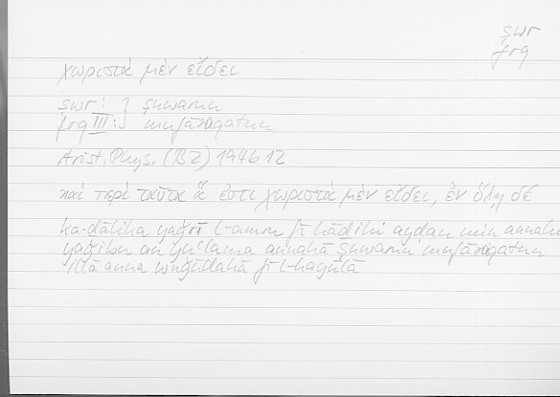 ṣwr
frq
χωριστὰ μὲν εἴδει
ṣwr : } ṣuwarun
frq III : } mufāriqatun
Arist. Phys. (B2) 194b12
καὶ περὶ ταῦτα ἅ ἐστι χωριστὰ μὲν εἴδει, ἐν ὕλῃ δέ
ka-ḏālika yaǧrī l-amru fī hāḏihi ayḍan min annahu
yaǧibu an yuʿlama annahā ṣuwarun mufāriqatun
illā anna wuǧūdahā fī l-hayūlā